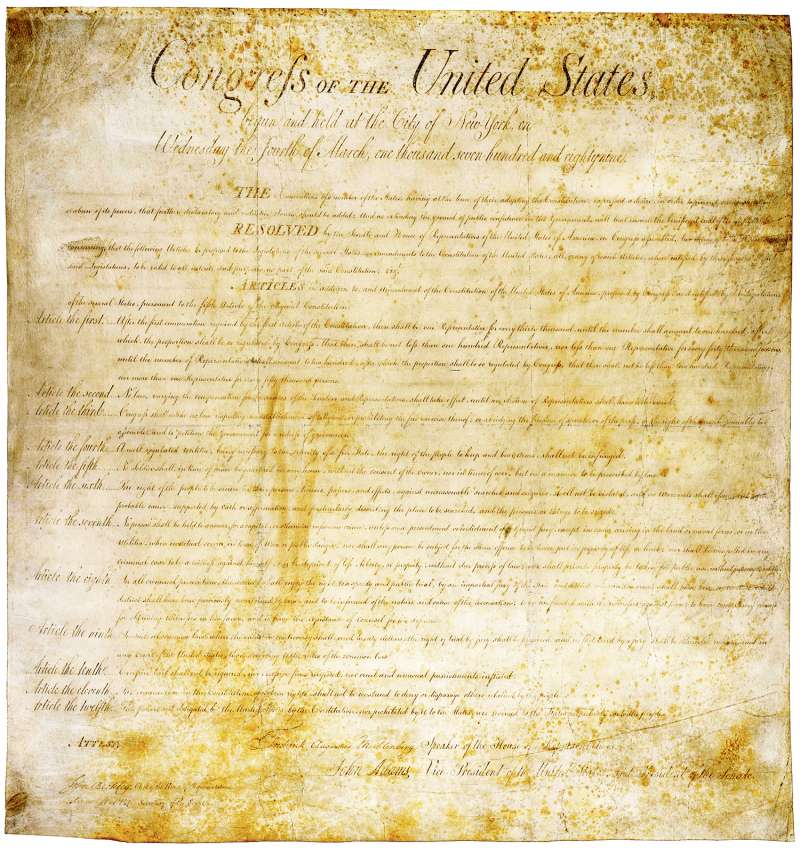 Congress OF THE United States,
begun and held at the City of New York, on
Wednesday the fourth of March, one thousand seven hundred and eighty nine.
THE Conventions of a number of the States, having at the time of their adopting the Constitution, expressed a desire, in order to prevent
abuse of its powers, that further declaratory and restrictive clauses should be added: And as extending the ground of public confidence in the Government, will best ensure the beneficent ends of its
RESOLVED by the Senate and House of Representatives of the United States of America, in Congress assembled, two thirds of
concurring, that the following Articles be proposed to the Legislatures of the several States, as amendments to the Constitution of the United States, all, or any of which Articles, when ratified by three fourths of the
said Legislatures, to be valid to all intents and purposes, as part of the said Constitution; viz.
ARTICLES in addition to, and Amendment of the Constitution of the United States of America, proposed by Congress, and ratified by the Legislatures
of the several States, pursuant to the fifth Article of the original Constitution.
Article the first. After the first enumeration required by the first article of the Constitution, there shall be one Representative for every thirty thousand, until the number shall amount to one hundred, after
which, the proportion shall be so regulated by Congress, that there shall be not less than one hundred Representatives, nor less than one Representative for every forty thousand persons,
until the number of Representatives shall amount to two hundred, after which the proportion shall be so regulated by Congress, that there shall not be less than two hundred Representatives,
nor more than one Representative for every fifty thousand persons.
Article the second. No law, varying the compensation for the services of the Senators and Representatives, shall take effect, until an election of Representatives shall have intervened.
Article the third. Congress shall make no law respecting an establishment of religion, or prohibiting the free exercise thereof; or abridging the freedom of speech, or of the press; or the right of the people peaceably to
assemble, and to petition the Government for a redress of grievances.
Article the fourth. A well regulated Militia, being necessary to the security of a free State, the right of the people to keep and bear Arms, shall not be infringed.
Article the fifth. No Soldier shall, in time of peace be quartered in any house, without the consent of the owner, nor in time of war, but in a manner to be prescribed by law.
Article the sixth. The right of the people to be secure in their persons, houses, papers, and effects, against unreasonable searches and seizures, shall not be violated, and no Warrants shall issue, but upon
probable cause, supported by oath or affirmation, and particularly describing the place to be searched, and the persons or things to be seized.
Article the seventh. No person shall be held to answer for a capital, or otherwise infamous crime, unless on a presentment or indictment of a grand jury, except in cases arising in the land or naval forces, or in the
Militia, when in actual service in time of War or public danger; nor shall any person be subject for the same offence to be twice put in jeopardy of life or limb; nor shall be compelled in any
criminal case to be a witness against himself, nor be deprived of life, liberty, or property, without due process of law; nor shall private property be taken for public use without just compensation.
Article the eighth. In all criminal prosecutions, the accused shall enjoy the right to a speedy and public trial, by an impartial jury of the State and district wherein the crime shall have been committed, which
district shall have been previously ascertained by law, and to be informed of the nature and cause of the accusation; to be confronted with the witnesses against him; to have compulsory process
for obtaining witnesses in his favor, and to have the assistance of counsel for his defence.
Article the ninth. In suits at common law, where the value in controversy shall exceed twenty dollars, the right of trial by jury shall be preserved, and no fact tried by a jury, shall be otherwise re-examined in
any Court of the United States, than according to the rules of the common law.
Article the tenth. Excessive bail shall not be required, nor excessive fines imposed, nor cruel and unusual punishments inflicted.
Article the eleventh. The enumeration in the Constitution, of certain rights, shall not be construed to deny or disparage others retained by the people.
Article the twelfth. The powers not delegated to the United States by the Constitution, nor prohibited by it to the States, are reserved to the States respectively, or to the people.
ATTEST,
Frederick Augustus Muhlenberg Speaker of the House of Representatives
John Adams, Vice President of the United States, and President of the Senate.
John Beckley, Clerk of the House of Representatives.
Sam. A. Otis Secretary of the Senate.